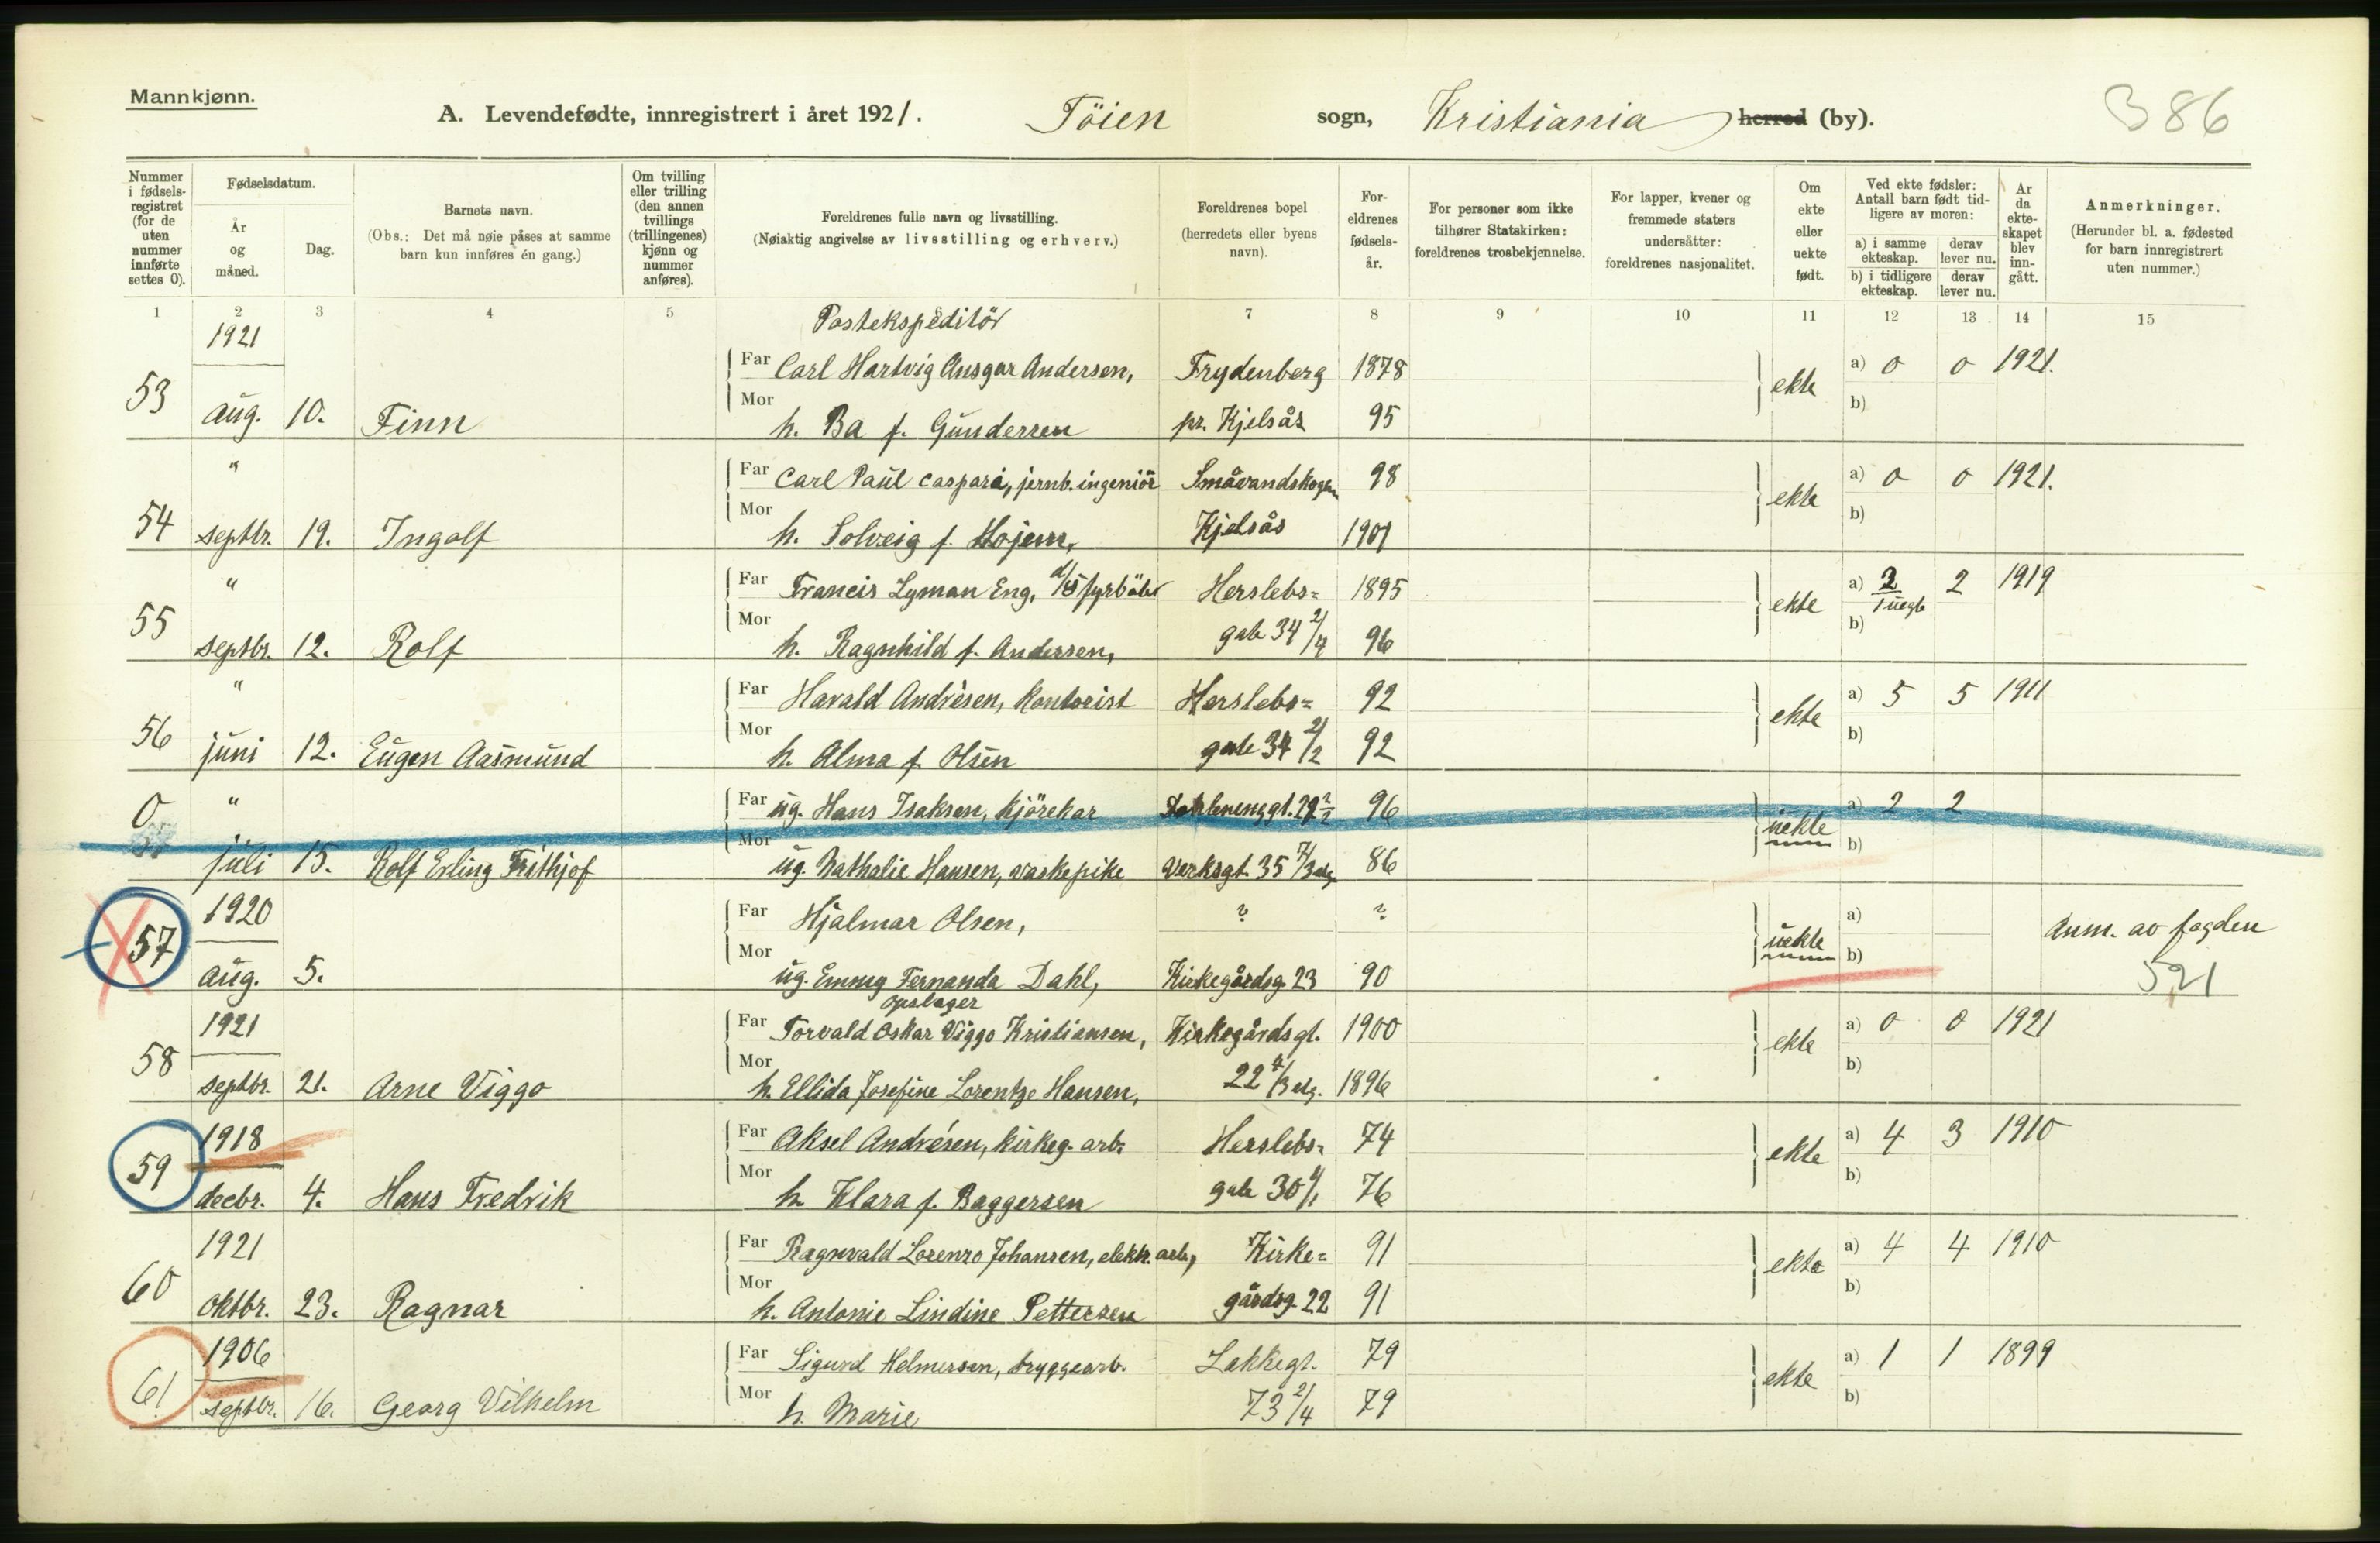 Mannkjønn.
A. Levendefødte, innregistrert i året 1921. Töien sogn, Kristiania herred (by). 386
Nummer i fødsels-registret (for de uten nummer innførte settes 0).
Fødselsdatum.
År og måned.
Dag.
Barnets navn.
(Obs.: Det må nøie påses at samme barn kun innføres én gang.)
Om tvilling eller trilling (den annen tvillings (trillingenes) kjønn og nummer anføres).
Foreldrenes fulle navn og livsstilling.
(Nøiaktig angivelse av livsstilling og erhverv.)
Foreldrenes bopel (herredets eller byens navn).
For-eldrenes fødsels-år.
For personer som ikke tilhører Statskirken: foreldrenes trosbekjennelse.
For lapper, kvener og fremmede staters undersåtter: foreldrenes nasjonalitet.
Om ekte eller uekte født.
Ved ekte fødsler: Antall barn født tid-ligere av moren:
a) i samme ekteskap. derav lever nu.
b) i tidligere ekteskap. derav lever nu.
År da ekte-skapet blev inn-gått.
Anmerkninger.
(Herunder bl. a. fødested for barn innregistrert uten nummer.)
1 2 3 4 5 7 8 9 10 11 12 13 14 15
1921 Postekspeditör
Far Carl Hartvig Ansgar Andersen, Frydenberg 1878 a) 0 0 1921.
53 aug. 10. Finn Mor h. Ba f. Gundersen pr. Kjelsås 95 ekte b)
" Far Carl Paul Caspari, jernb. ingeniör Småvandskogen 98 a) 0 0 1921.
54 septbr. 19. Ingolf Mor h. Solveig f. Hojem, Kjelsås 1901 ekte b)
" Far Francis Lyman Eng, d/s fyrböter Herslebs= 1895 a) 2 2 1919
1 uegte
55 septbr. 12. Rolf Mor h. Ragnhild f. Andersen, gate 34 2/4 96 ekte b)
" Far Harald Andrésen, kontorist Herslebs= 92 a) 5 5 1911
56 juni 12. Eugen Aasmund Mor h. Alma f. Olsen gate 34 2/2 92 ekte b)
0 " Far ug. Hans Isaksen, kjörekar 96 a) 2 2
juli 15. Rolf Erling Frithjof Mor ug. Nathalie Hansen, vaskepike Verksgt. 35 96 uekte b)
1920 Far Hjalmar Olsen, ? ? a) Anm. av fogden
57 aug. 5. Mor ug. Emmy Fernanda Dahl, Kirkegårdsg. 23 90 uekte b) 521
opslager
1921 Far Torvald Oskar Viggo Kristiansen, Kirkegårdsgt. 1900 a) 0 0 1921
58 septbr. 21. Arne Viggo Mor h. Ellida Josefine Lorentze Hansen, 22 1896 ekte b)
1918 Far Aksel Andrésen, kirkeg. arb. Herslebs= 74 a) 4 3 1910
59 decbr. 4. Hans Fredrik Mor h. Klara f. Baggersen gate 30 76 ekte b)
1921 Far Ragnvald Lorenzo Johansen, elektr. arb., Kirke= 91 a) 4 4 1910
60 oktbr. 23. Ragnar Mor h. Antonie Lindine Pettersen gårdsg. 22 91 ekte b)
1906 Far Sigurd Helmersen, bryggearb. Lakkegt. 79 a) 1 1 1899
61 septbr. 16. Georg Vilhelm Mor h. Marie 73 2/4 79 ekte b)